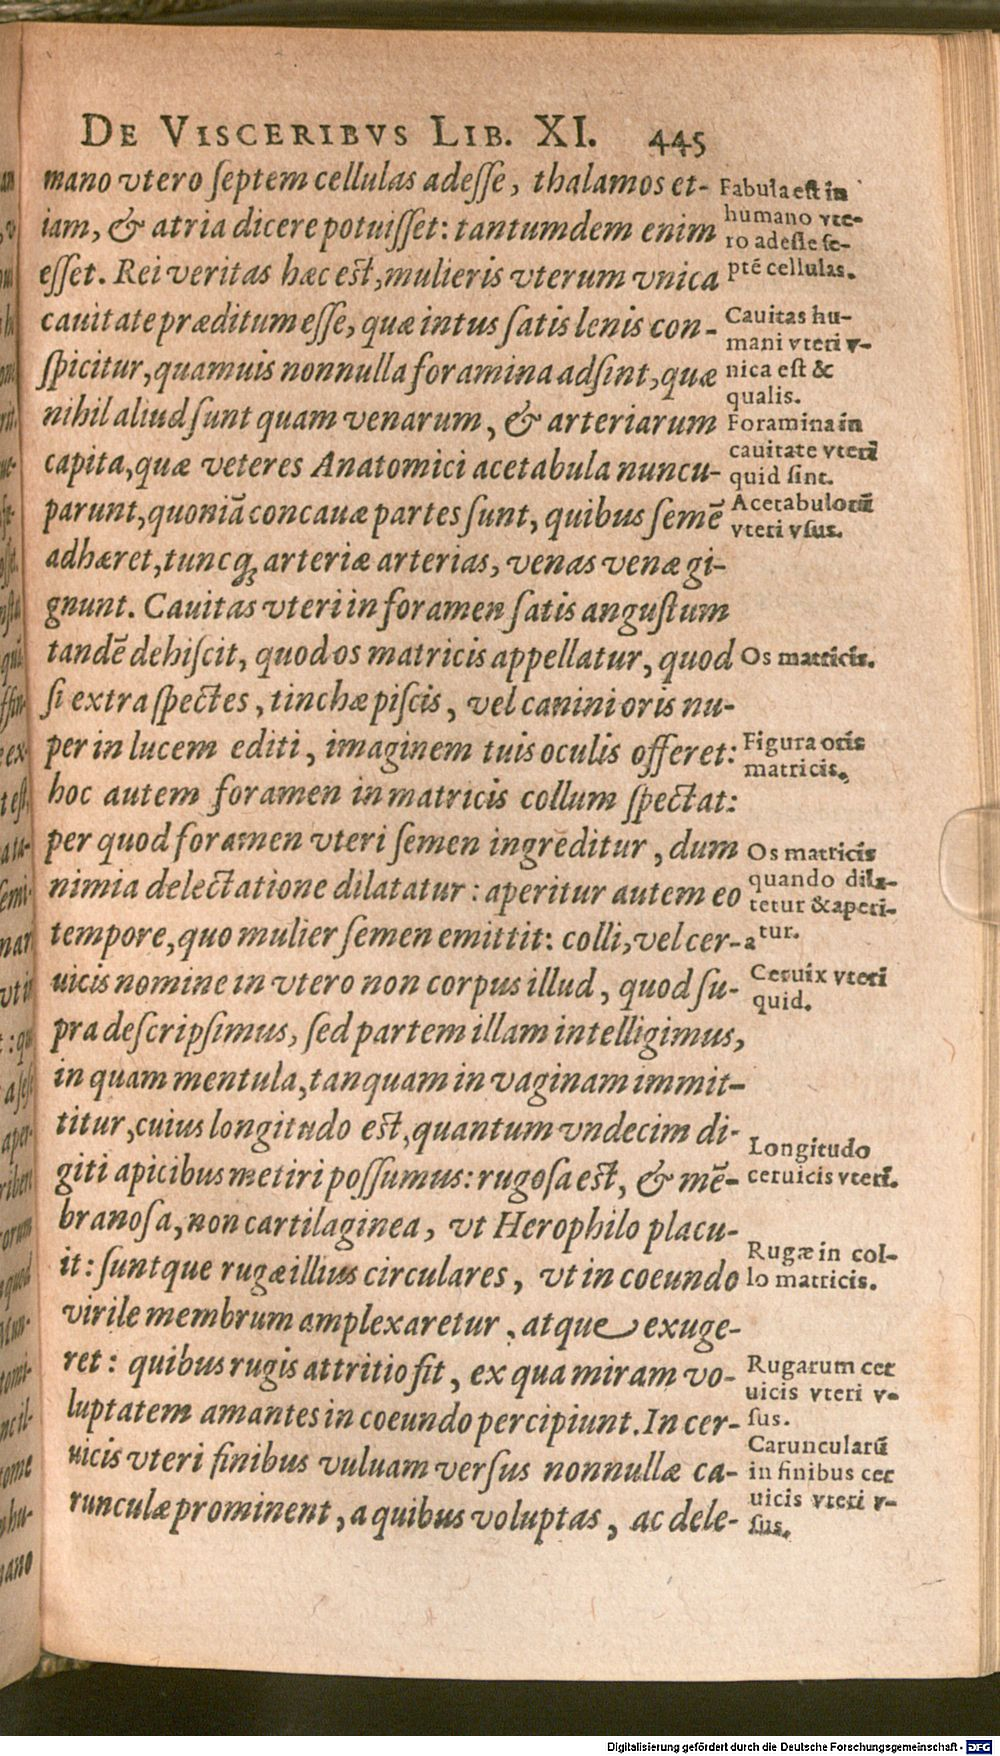 DE VISCERIBVS LIB. XI. 445
mano vtero ſeptem cellulas adeſſe, thalamos et-
iam, & atria dicere potuiſſet: tantumdem enim
eſſet. Rei veritas hæc eſt, mulieris vterum vnica
cauitate præditum eſſe, quæ intus ſatis lenis con-
ſpicitur, quamuis nonnulla foramina adſint, quæ
nihil aliud ſunt quam venarum, & arteriarum
capita, quæ veteres Anatomici acetabula nuncu-
parunt, quoniā concauæ partes ſunt, quibus ſemē
adhæret, tuncq́ꝫ arteriæ arterias, venas venæ gi-
gnunt. Cauitas vteri in foramen ſatis anguſtum
tandē dehiſcit, quod os matricis appellatur, quod
ſi extra ſpectes, tinchæ piſcis, vel canini oris nu-
per in lucem editi, imaginem tuis oculis offeret:
hoc autem foramen in matricis collum ſpectat:
per quod foramen vteri ſemen ingreditur, dum
nimia delectatione dilatatur: aperitur autem eo
tempore, quo mulier ſemen emittit: colli, vel cer-
uicis nomine in vtero non corpus illud, quod ſu-
pra deſcripſimus, ſed partem illam intelligimus,
in quam mentula, tanquam in vaginam immit-
titur, cuius longitudo eſt, quantum vndecim di-
giti apicibus metiri poſſumus: rugoſa eſt, & mē-
branoſa, non cartilaginea, vt Herophilo placu-
it: ſuntque rugæ illius circulares, vt in coeundo
virile membrum amplexaretur, atque exuge-
ret: quibus rugis attritio fit, ex qua miram vo-
luptatem amantes in coeundo percipiunt. In cer-
uicis vteri finibus vuluam verſus nonnullæ ca-
runculæ prominent, a quibus voluptas, ac dele-
Fabula eſt in
humano vte-
ro adeſſe ſe-
ptē cellulas.
Cauitas hu-
mani vteri v-
nica eſt &
qualis.
Foramina in
cauitate vteri
quid ſint.
Acetabulorū
vteri vſus.
Os matricis.
Figura oris
matricis.
Os matricis
quando dila-
tetur & aperi-
atur.
Ceruix vteri
quid.
Longitudo
ceruicis vteri.
Rugæ in col-
lo matricis.
Rugarum cer
uicis vteri v-
ſus.
Caruncularū
in finibus cer
uicis vteri v-
ſus.
Digitalisierung gefördert durch die Deutsche Forschungsgemeinschaft - DFG